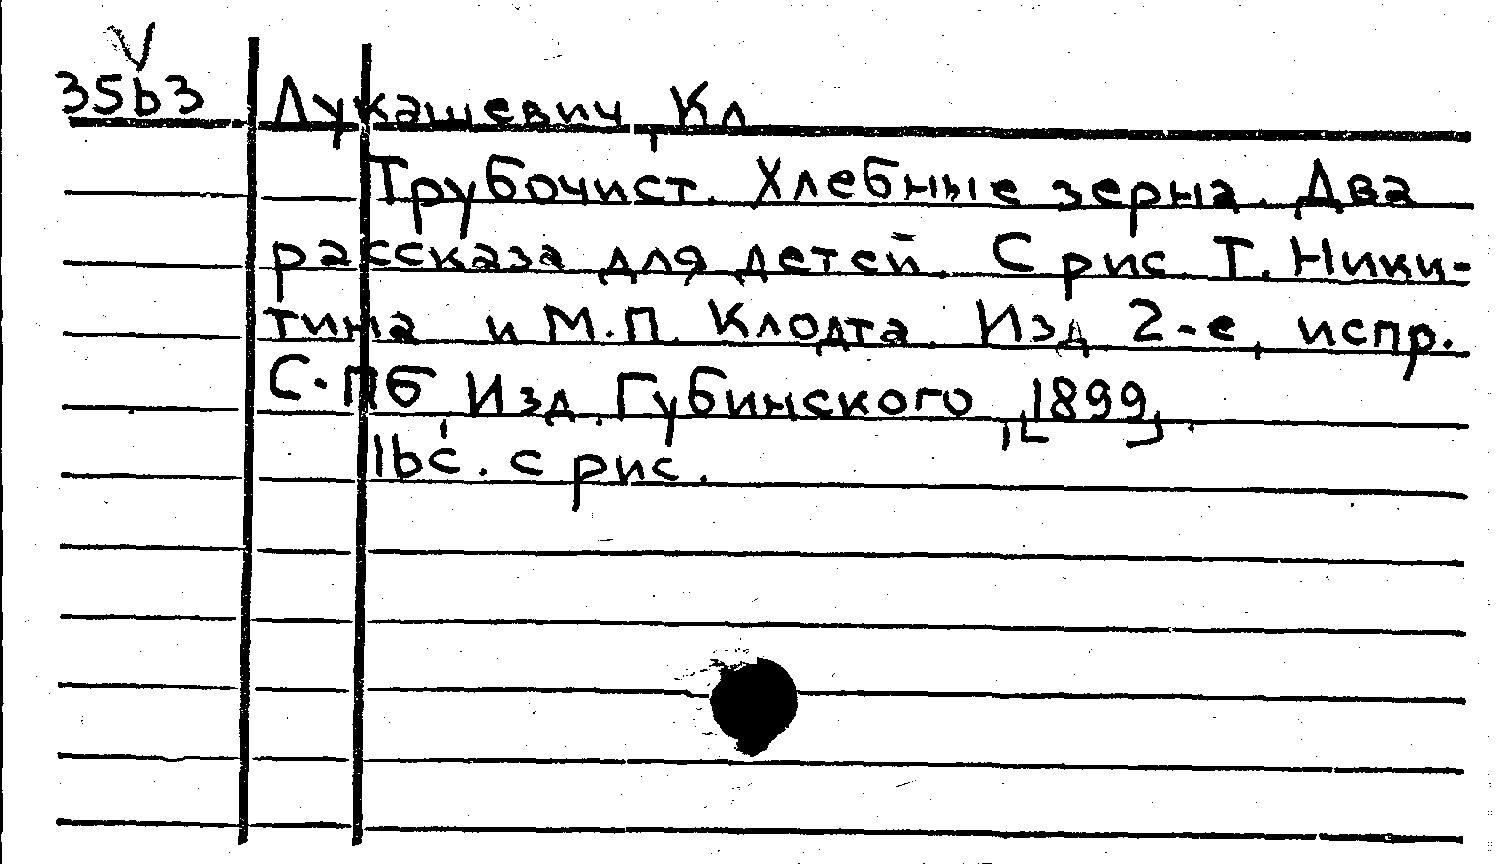 V
35b3 Лукашевич, Кл
Трубочист. Хлебные зерна. Два
рассказа для детей. С рис. Т. Ники-
тина и М.П. Клодта. Изд 2-е, испр.
С.-Пб, Изд. Губинского, [1899].
16 с. с рис.